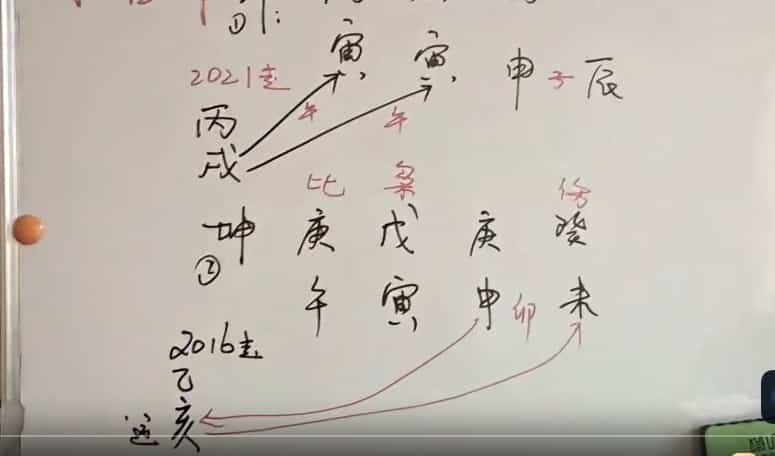 ①
寅 寅 申 子 辰
2021走
午 午
丙
戌
比 枭 伤
坤 庚 戊 庚 癸
②
午 寅 申 卯 未
2016走
乙
亥
运